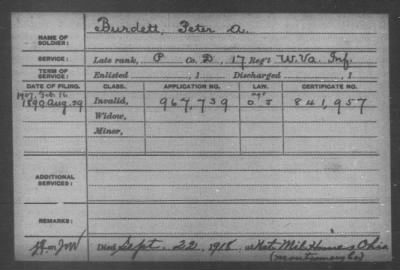 NAME OF SOLDIER: Burdett, Peter A.
SERVICE: Late rank, P Co. D, 17 Reg't W. Va. Inf.
TERM OF SERVICE: Enlisted , 1 Discharged , 1
DATE OF FILING. CLASS. APPLICATION NO. LAW. CERTIFICATE NO.
1907, Feb 16
1890 Aug. 29 Invalid, 967,739 841,957
Widow,
Minor,
ADDITIONAL SERVICES:
REMARKS:
Died Sept. 22, 1918, at Nat. Mil. Home Ohio
(Montgomery Co)